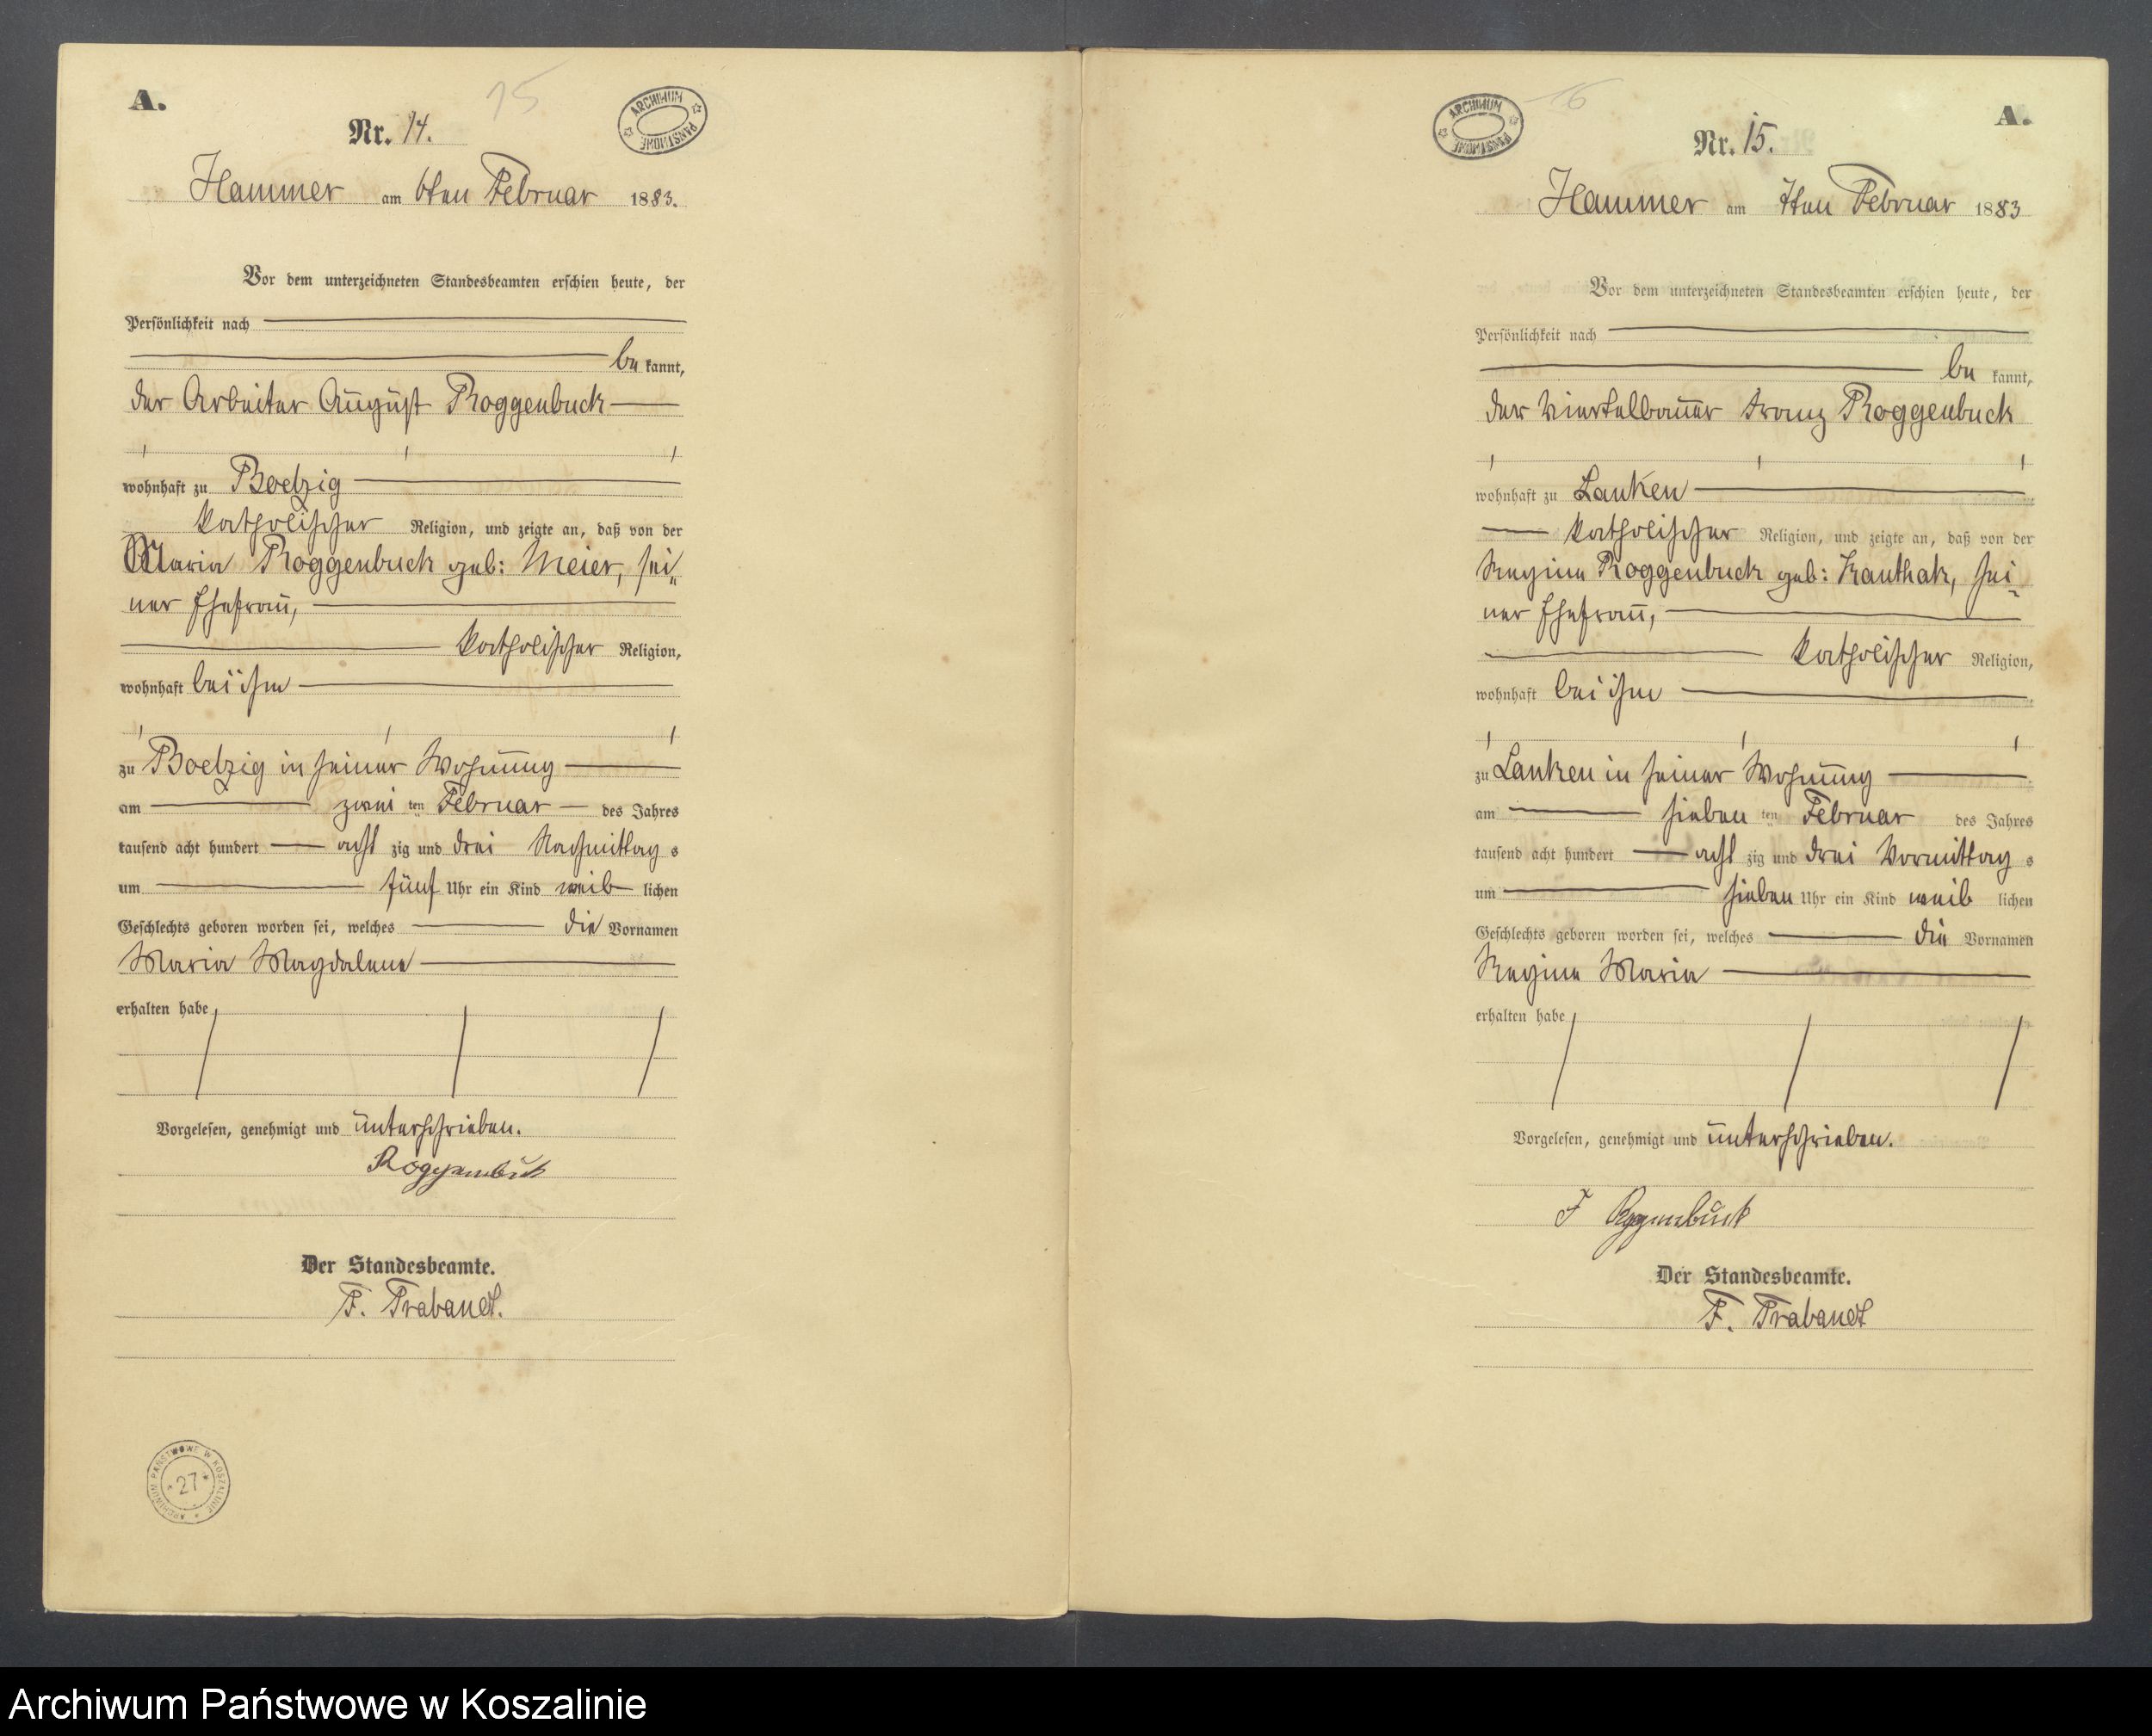 A.
15
Nr. 14.
ARCHIWUM PAŃSTWOWE
Hammer am 6ten Februar 1883.
Vor dem unterzeichneten Standesbeamten erschien heute, der
Persönlichkeit nach
be kannt,
der Arbeiter August Roggenbuck
wohnhaft zu Boelzig
katholischer Religion, und zeigte an, daß von der
Maria Roggenbuck geb: Meier, sei„
ner Ehefrau,
katholischer Religion,
wohnhaft bei ihm
zu Boelzig in seiner Wohnung
am zwei ten Februar des Jahres
tausend acht hundert acht zig und drei Nachmittag s
um fünf Uhr ein Kind weib lichen
Geschlechts geboren worden sei, welches die Vornamen
Maria Magdalene
erhalten habe
Vorgelesen, genehmigt und unterschrieben.
Roggenbuck
Der Standesbeamte.
F. Trabandt.
ARCHIWUM PAŃSTWOWE W KOSZALINIE
27
ARCHIWUM PAŃSTWOWE
16
A.
Nr. 15.
Hammer am 7ten Februar 1883
Vor dem unterzeichneten Standesbeamten erschien heute, der
Persönlichkeit nach
be kannt,
der Viertelbauer Franz Roggenbuck
wohnhaft zu Lanken
katholischer Religion, und zeigte an, daß von der
Regine Roggenbuck geb: Kanthak, sei„
ner Ehefrau,
katholischer Religion,
wohnhaft bei ihm
zu Lanken in seiner Wohnung
am sieben ten Februar des Jahres
tausend acht hundert acht zig und drei Vormittag s
um sieben Uhr ein Kind weib lichen
Geschlechts geboren worden sei, welches die Vornamen
Regine Maria
erhalten habe
Vorgelesen, genehmigt und unterschrieben.
F Roggenbuck
Der Standesbeamte.
F. Trabandt
Archiwum Państwowe w Koszalinie